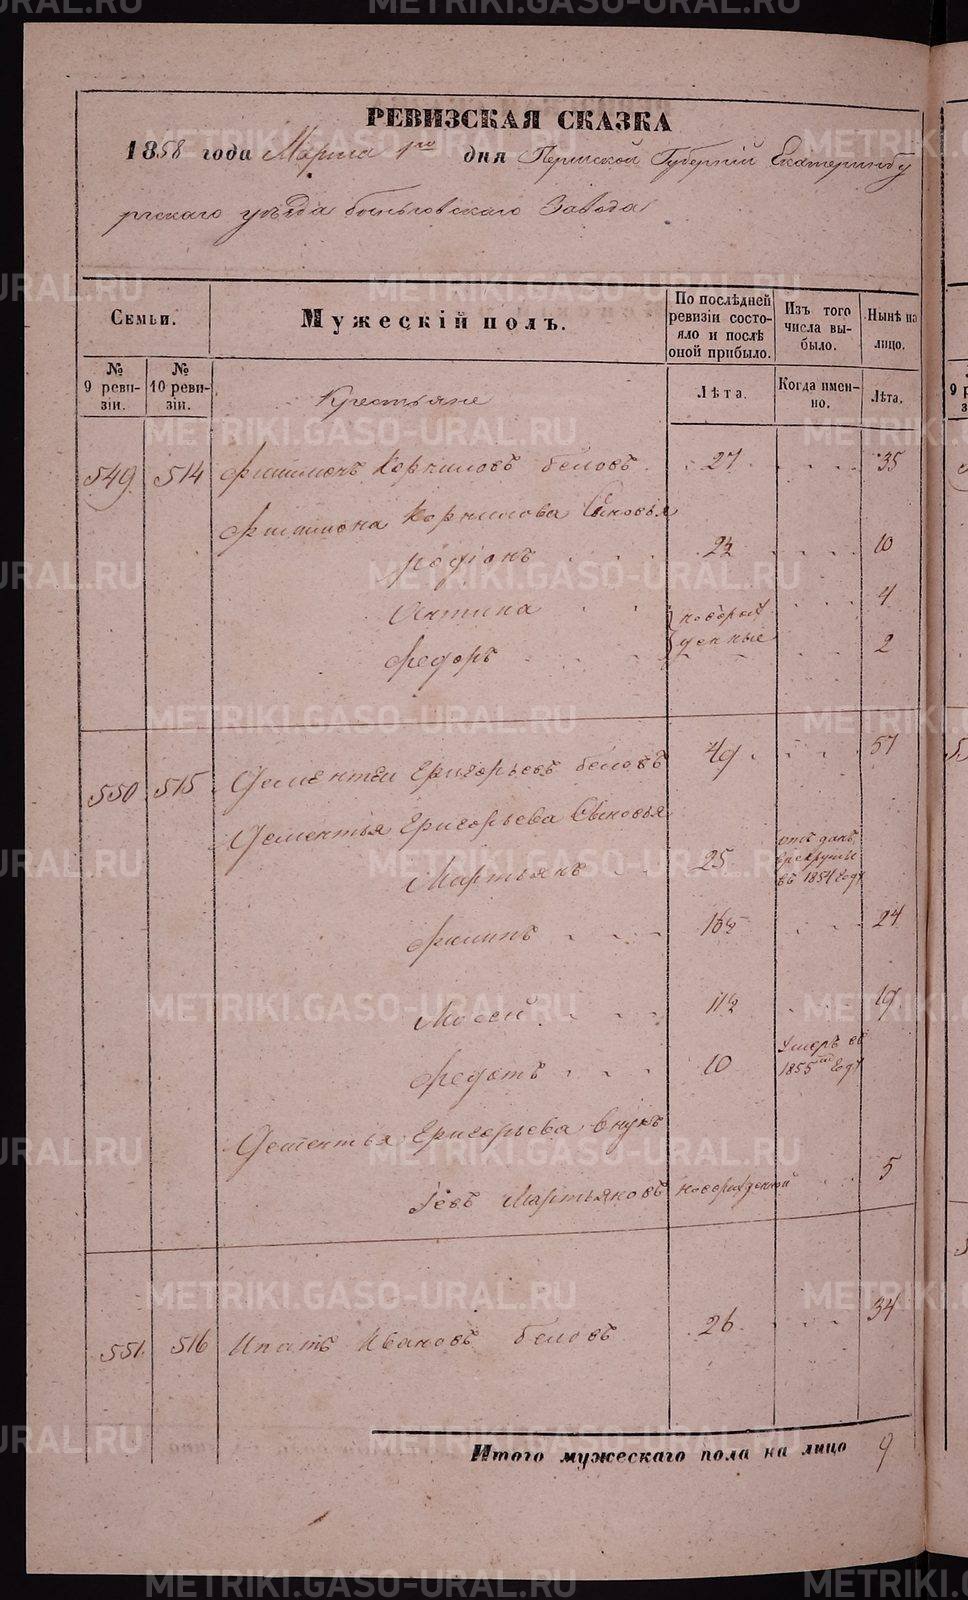 РЕВИЗСКАЯ СКАЗКА
1858 года Марта 1го дня Пермской Губернiи Екатеринбу
ргскаго уѣзда быньговскаго Завода
Семьи.
Мужескiй полъ.
По послѣдней ревизiи состояло и послѣ оной прибыло.
Изъ того числа выбыло.
Нынѣ на лицо.
№ 9 ревизiи.
№ 10 ревизiи.
Лѣта.
Когда именно.
Лѣта.
Крестьяне
549 514 Филимонъ Корниловъ беловъ 27 35
Филимона Корнилова Сыновья
родiонъ 2½ 10
Антипа новорож 4
федоръ денные 2
550 515 Дементей Григорьевъ беловъ 49 57
Дементья Григорьева Сыновья
Мартьянъ 25 отъ данъ врекруты въ 1854 году
Филипъ 16½ 24
Мосей 11½ 19
федотъ 10 Умеръ въ 1855мъ году
Дементья Григорьева внукъ
Iевъ Мартьяновъ новорожденной 5
551 516 Ипатъ Ивановъ беловъ 26 34
Итого мужескаго пола на лицо 9
METRIKI.GASO-URAL.RU